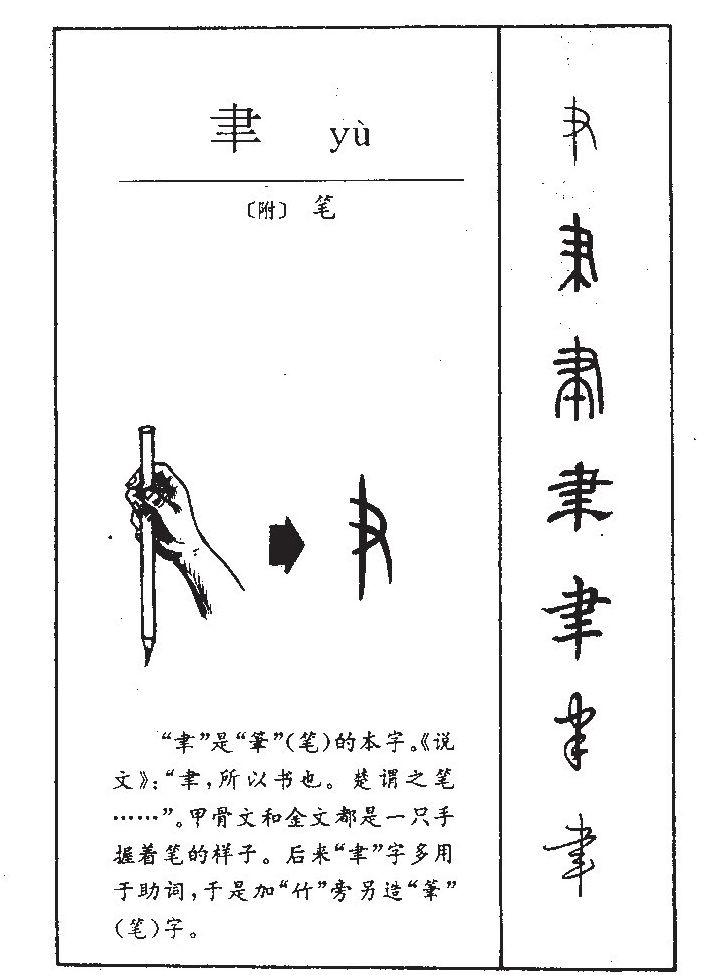 聿 yù
〔附〕 笔
“聿”是“筆”(笔)的本字。《说
文》：“聿，所以书也。楚谓之笔
……”。甲骨文和金文都是一只手
握着笔的样子。后来“聿”字多用
于助词，于是加“竹”旁另造“筆”
(笔)字。
聿
聿
聿
聿
聿
聿
聿